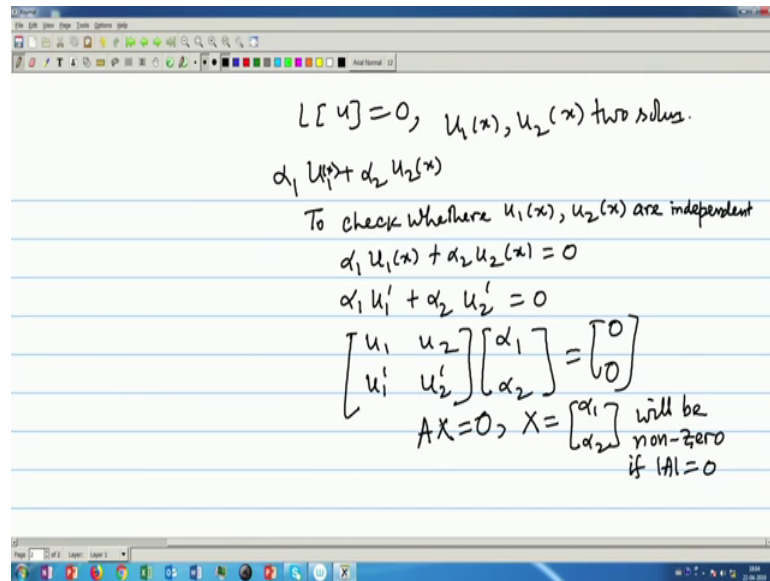 Journal
File Edit View Page Tools Options Help
Arial Normal 12
L[u]=0, u₁(x), u₂(x) two solns.
α₁ u₁(x) + α₂ u₂(x)
To check whethere u₁(x), u₂(x) are independent
α₁ u₁(x) + α₂ u₂(x) = 0
α₁ u₁' + α₂ u₂' = 0
[u₁ u₂] [α₁] = [0]
[u₁' u₂'] [α₂] [0]
AX=0, X= [α₁ α₂] will be
non-zero
if |A|=0
Page 2 of 2 Layer: Layer 1